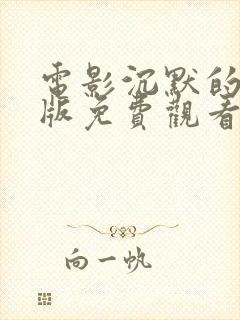 電影沉默的
版免費觀看
向一帆